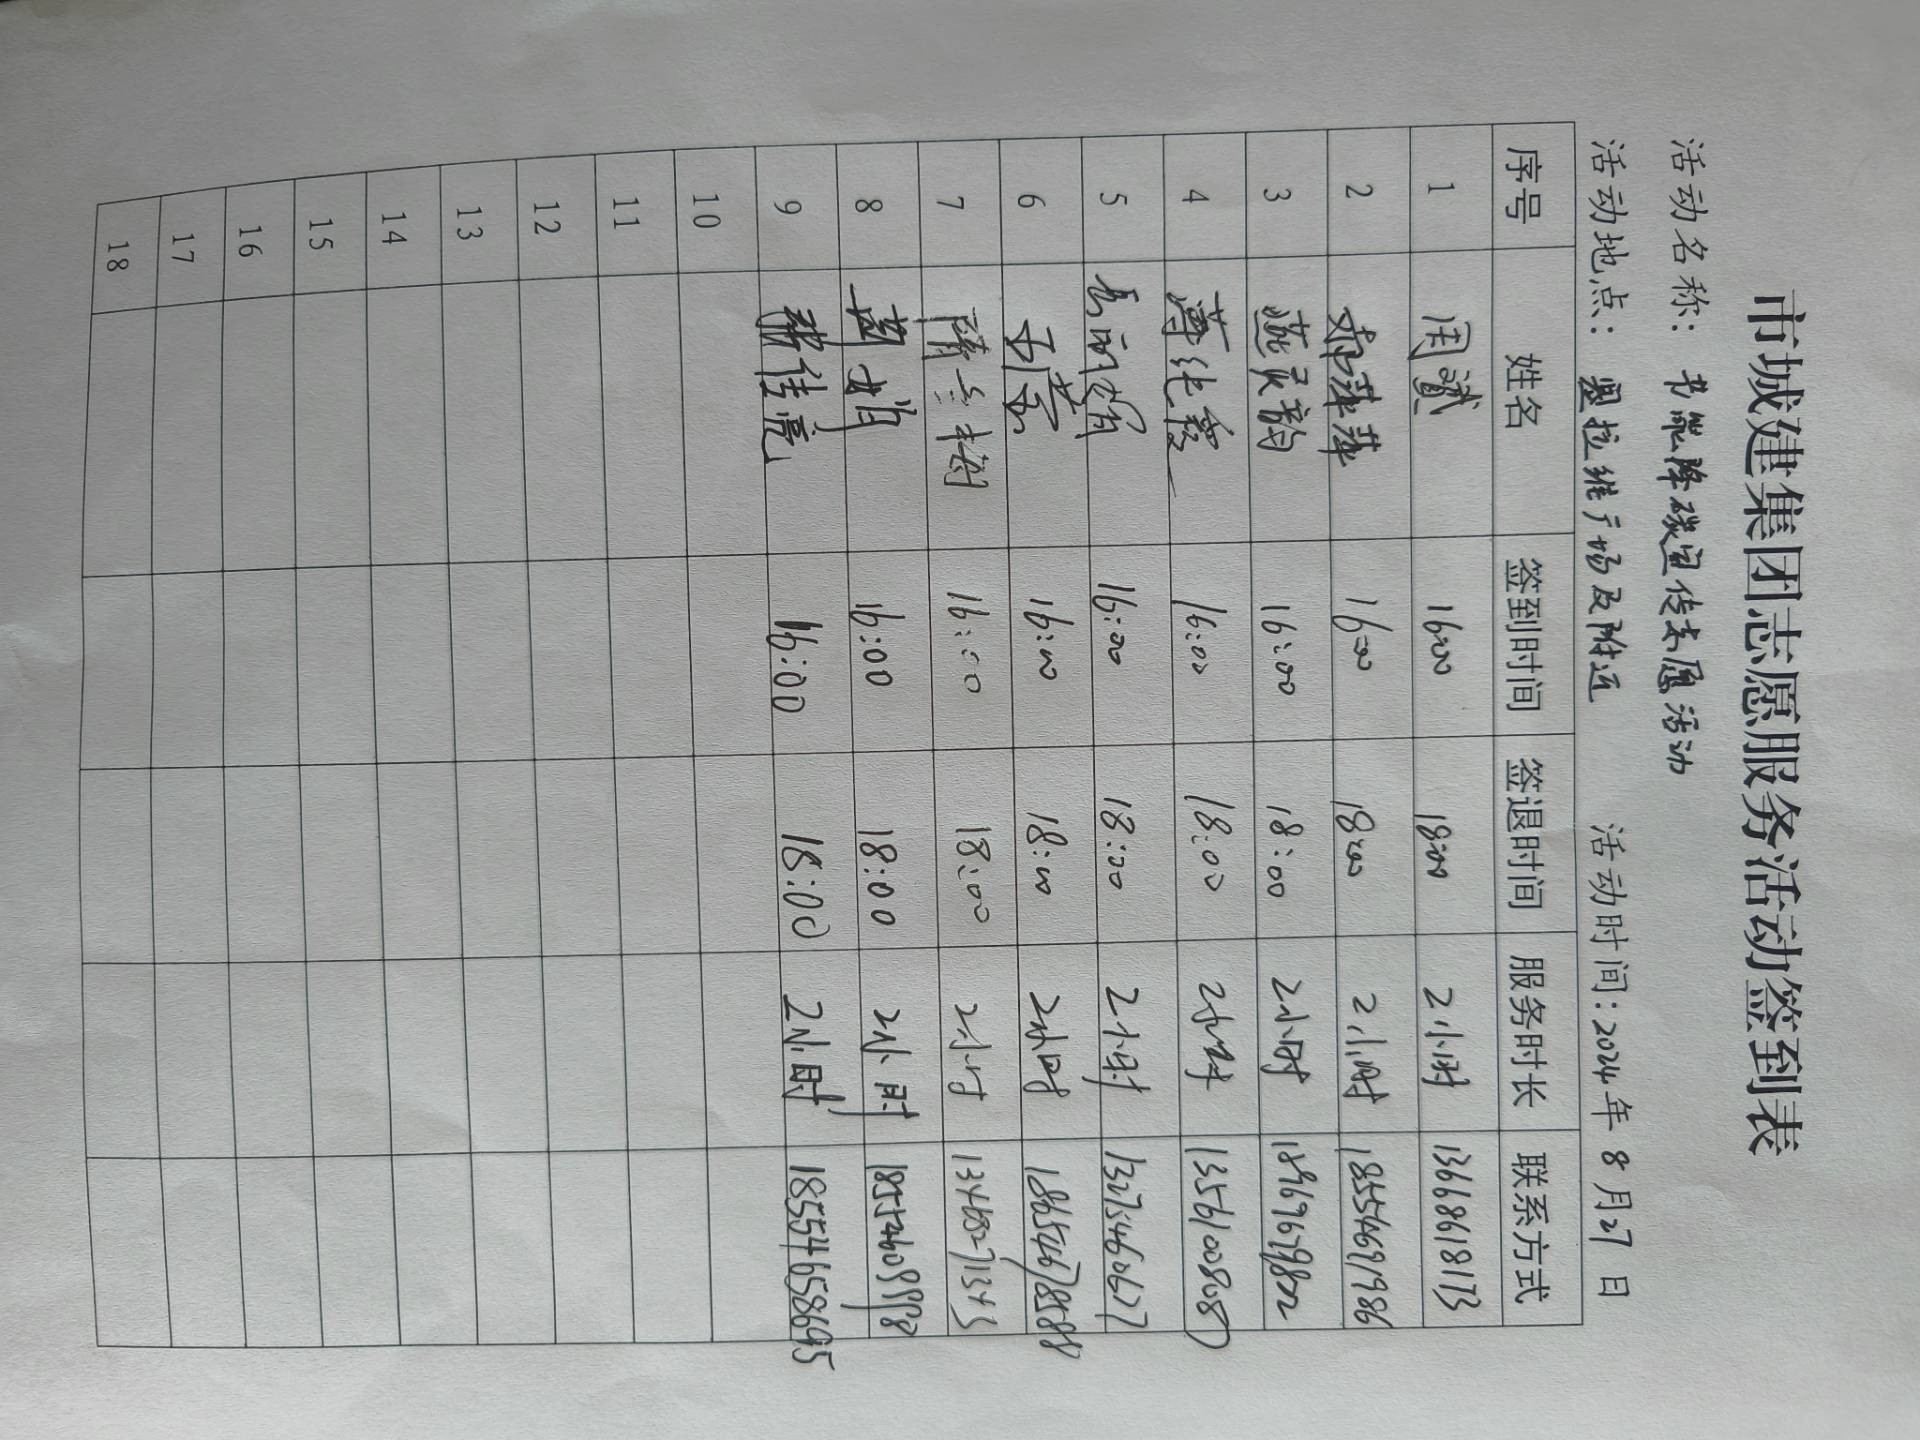 市城建集团志愿服务活动签到表
活动名称：节能降碳宣传志愿活动
活动地点：奥拉维广场及附近 活动时间：2024年 8 月27 日
序号 姓名 签到时间 签退时间 服务时长 联系方式
1 周斌 16:00 18:00 2小时 13668618173
2 萍萍 16:00 18:00 2小时 18554691986
3 燕灵韵 16:00 18:00 2小时 18969679802
4 薄纯霞 16:00 18:00 2小时 13561008087
5 16:00 18:00 2小时 13275460677
6 16:00 18:00 2小时 18654678588
7 隋兰 16:00 18:00 2小时
8 16:00 18:00 2小时
9 佳亮 16:00 18:00 2小时 18554658695
10
11
12
13
14
15
16
17
18